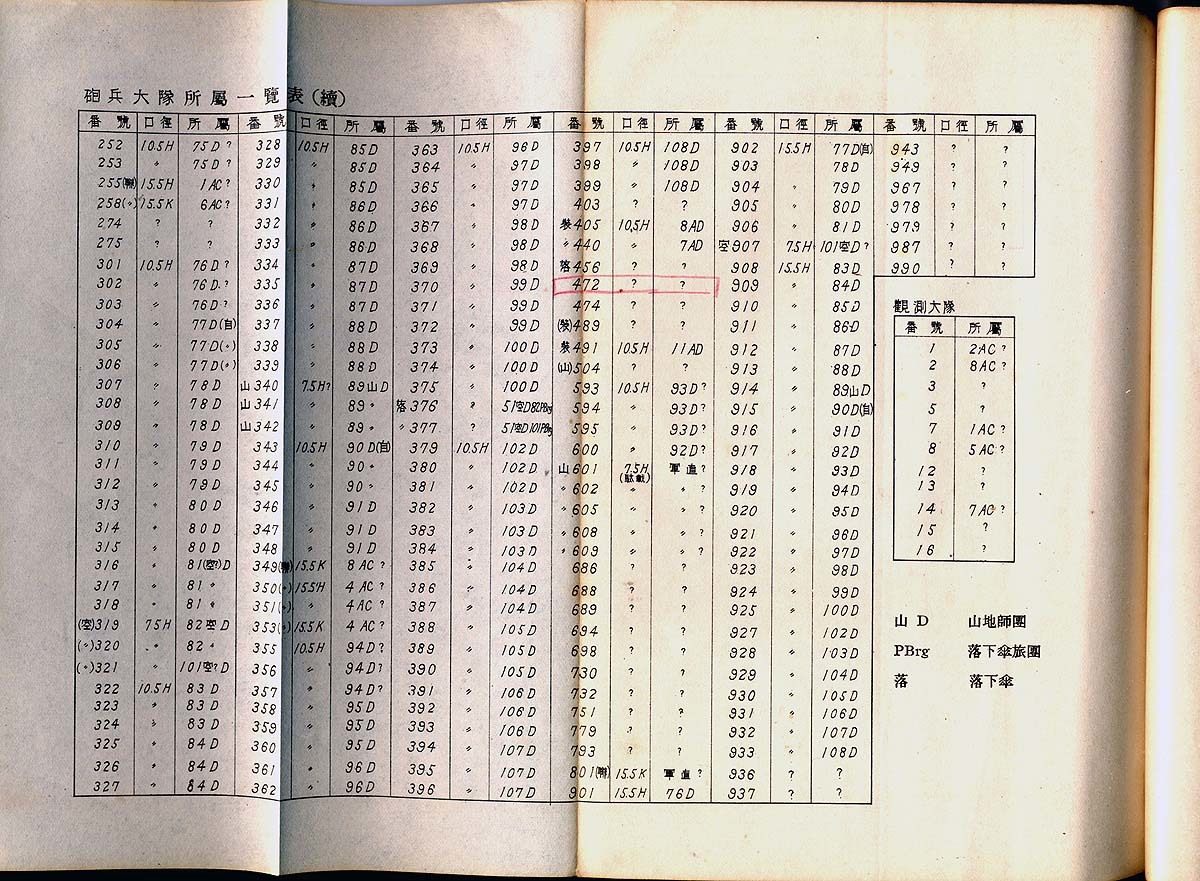 砲兵大隊所屬一覽表(續)
番號 口徑 所屬 番號 口徑 所屬 番號 口徑 所屬 番號 口徑 所屬 番號 口徑 所屬 番號 口徑 所屬
252 10.5H 75D? 328 10.5H 85D 363 10.5H 96D 397 10.5H 108D 902 15.5H 77D(自) 943 ? ?
253 〃 75D? 329 〃 85D 364 〃 97D 398 〃 108D 903 78D 949 ? ?
255 15.5H 1AC? 330 〃 85D 365 〃 97D 399 〃 108D 904 〃 79D 967 ? ?
258(〃) 15.5K 6AC? 331 〃 86D 366 〃 97D 403 ? ? 905 〃 80D 978 ? ?
274 ? ? 332 〃 86D 367 〃 98D 装405 10.5H 8AD 906 〃 81D 979 ? ?
275 ? ? 333 〃 86D 368 〃 98D 〃440 〃 7AD 空907 75H 101空D? 987 ? ?
301 10.5H 76D? 334 〃 87D 369 〃 98D 落456 ? ? 908 15.5H 83D 990 ? ?
302 〃 76D? 335 〃 87D 370 〃 99D 472 ? ? 909 〃 84D
303 〃 76D? 336 〃 87D 371 〃 99D 474 ? ? 910 〃 85D
304 〃 77D(自) 337 〃 88D 372 〃 99D (装)489 ? ? 911 〃 86D
305 〃 77D(〃) 338 〃 88D 373 〃 100D 装491 10.5H 11AD 912 〃 87D
306 〃 77D(〃) 339 〃 88D 374 〃 100D (山)504 ? ? 913 〃 88D
307 〃 78D 山340 7.5H? 89山D 375 〃 100D 593 10.5H 93D? 914 〃 89山D
308 〃 78D 山341 〃 89〃 落376 ? 51空D82PBrg 594 〃 93D? 915 〃 90D(自)
309 〃 78D 山342 〃 89〃 〃377 ? 51空D101PBrg 595 〃 93D? 916 〃 91D
310 〃 79D 343 10.5H 90D(自) 379 10.5H 102D 600 〃 92D? 917 〃 92D
311 〃 79D 344 〃 90〃 380 〃 102D 山601 7.5H(駄載) 軍直? 918 〃 93D
312 〃 79D 345 〃 90〃 381 〃 102D 〃602 〃 〃? 919 〃 94D
313 〃 80D 346 〃 91D 382 〃 103D 〃605 〃 〃? 920 〃 95D
314 〃 80D 347 〃 91D 383 〃 103D 〃608 〃 〃? 921 〃 96D
315 〃 80D 348 〃 91D 384 〃 103D 〃609 〃 〃? 922 〃 97D
316 〃 81(空?)D 349 15.5K 8AC? 385 〃 104D 686 ? ? 923 〃 98D
317 〃 81〃 350(〃) 15.5H 4AC? 386 〃 104D 688 ? ? 924 〃 99D
318 〃 81〃 351(〃) 〃 4AC? 387 〃 104D 689 ? ? 925 〃 100D
(空)319 75H 82空D 353(〃) 15.5K 4AC? 388 〃 105D 694 ? ? 927 〃 102D
(〃)320 〃 82〃 355 10.5H 94D? 389 〃 105D 698 ? ? 928 〃 103D
(〃)321 〃 101空?D 356 〃 94D? 390 〃 105D 730 ? ? 929 〃 104D
322 10.5H 83D 357 〃 94D? 391 〃 106D 732 ? ? 930 〃 105D
323 〃 83D 358 〃 95D 392 〃 106D 751 ? ? 931 〃 106D
324 〃 83D 359 〃 95D 393 〃 106D 779 ? ? 932 〃 107D
325 〃 84D 360 〃 95D 394 〃 107D 793 ? ? 933 〃 108D
326 〃 84D 361 〃 96D 395 〃 107D 801 15.5K 軍直? 936 ? ?
327 〃 84D 362 〃 96D 396 〃 107D 901 15.5H 76D 937 ? ?
觀測大隊
番號 所屬
1 2AC?
2 8AC?
3 ?
5 ?
7 1AC?
8 5AC?
12 ?
13 ?
14 7AC?
15 ?
16 ?
山D 山地師團
PBrg 落下傘旅團
落 落下傘